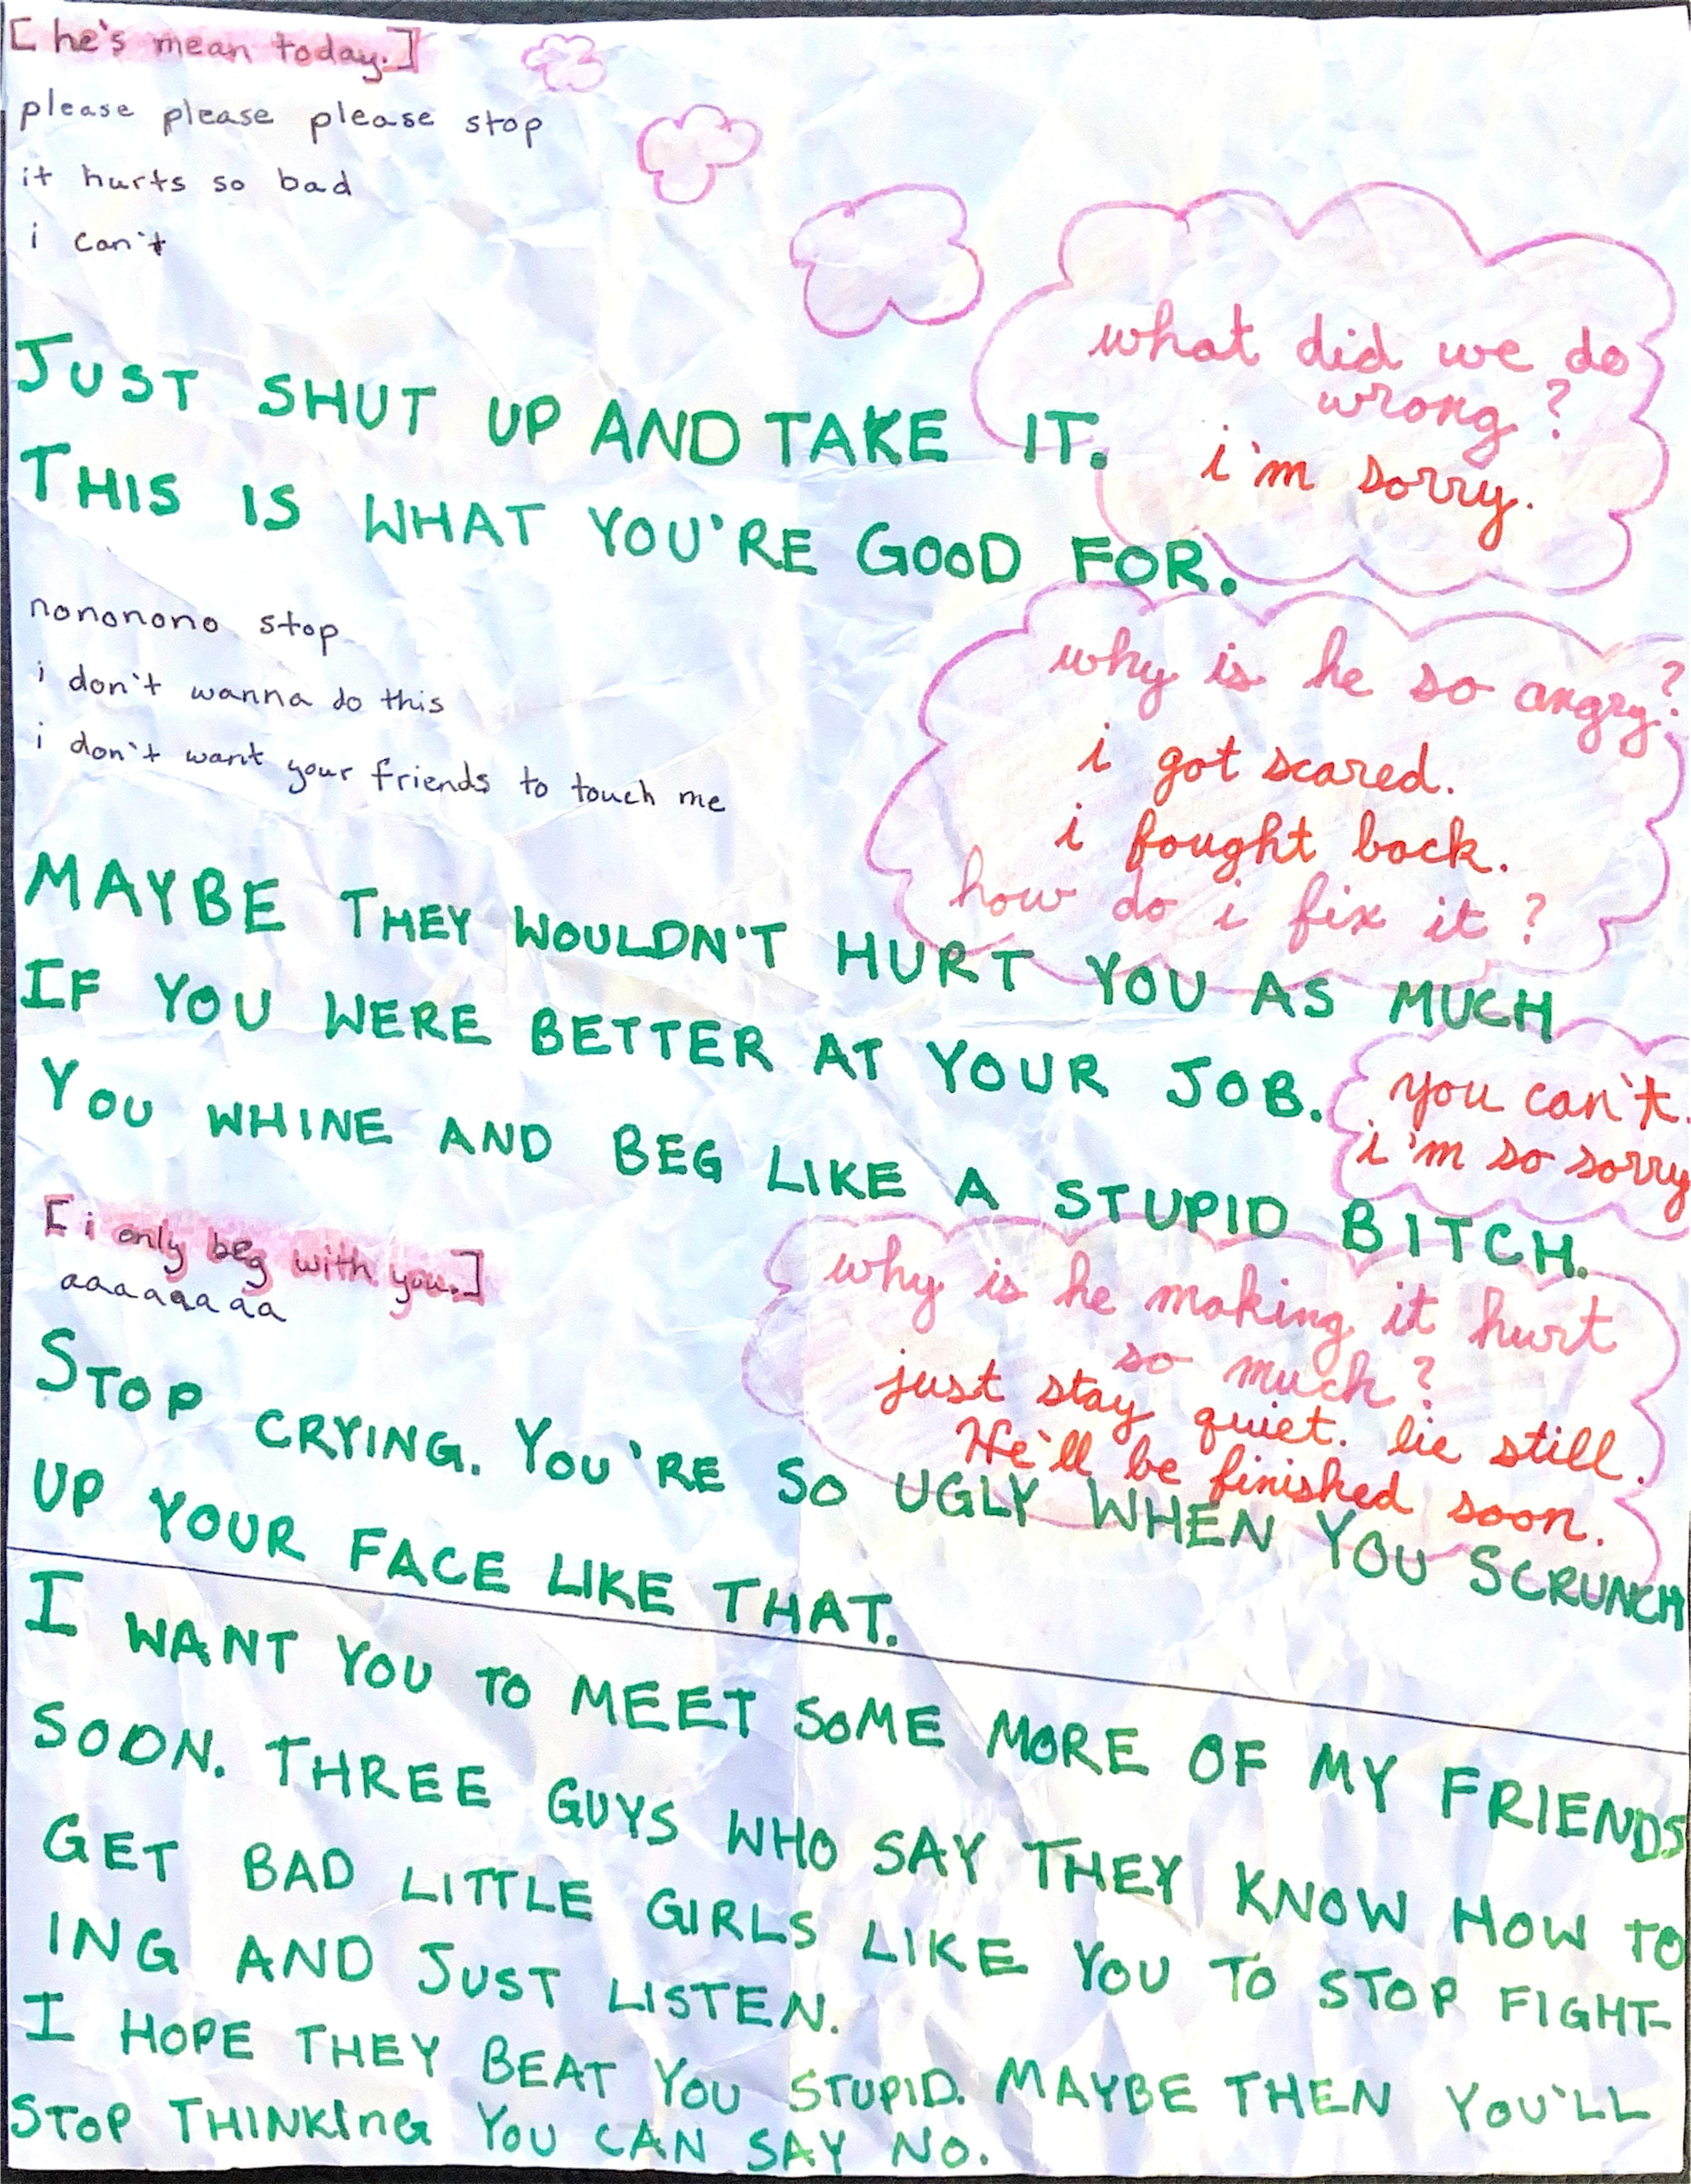 [he's mean today.]
please please please stop
it hurts so bad
i can't
what did we do
wrong?
i'm sorry.
JUST SHUT UP AND TAKE IT.
THIS IS WHAT YOU'RE GOOD FOR.
nononono stop
i don't wanna do this
i don't want your friends to touch me
why is he so angry?
i got scared.
i fought back.
how do i fix it?
MAYBE THEY WOULDN'T HURT YOU AS MUCH
IF YOU WERE BETTER AT YOUR JOB.
you can't.
i'm so sorry
YOU WHINE AND BEG LIKE A STUPID BITCH.
[i only beg with you.]
aaaaaaaa
why is he making it hurt
so much?
just stay quiet. lie still.
He'll be finished soon.
STOP CRYING. YOU'RE SO UGLY WHEN YOU SCRUNCH
UP YOUR FACE LIKE THAT.
I WANT YOU TO MEET SOME MORE OF MY FRIENDS
SOON. THREE GUYS WHO SAY THEY KNOW HOW TO
GET BAD LITTLE GIRLS LIKE YOU TO STOP FIGHT-
ING AND JUST LISTEN.
I HOPE THEY BEAT YOU STUPID. MAYBE THEN YOU'LL
STOP THINKING YOU CAN SAY NO.